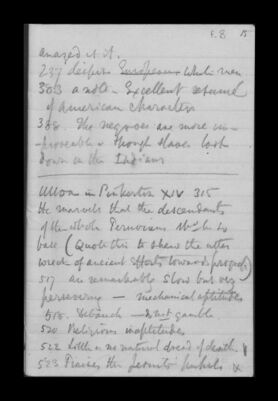 E.8 15
amazed at it.
237 despise Europeans White men
303 a note - Excellent resumé
of American characters
308. The negroes are more im-
proveable & though slaves look
down on the Indians
Ulloa in Pinkerton XIV 315
He marvels that the descendants
of the whole Peruvians shd be so
base (Quote this to shew the utter
wreck of ancient efforts towards progress)
517 are remarkably slow but very
persevering - mechanical aptitudes
518. Debauch - & gamble
520 Religious inaptitudes
522 no natural dread of death
533 Praises the Jesuits' schools x